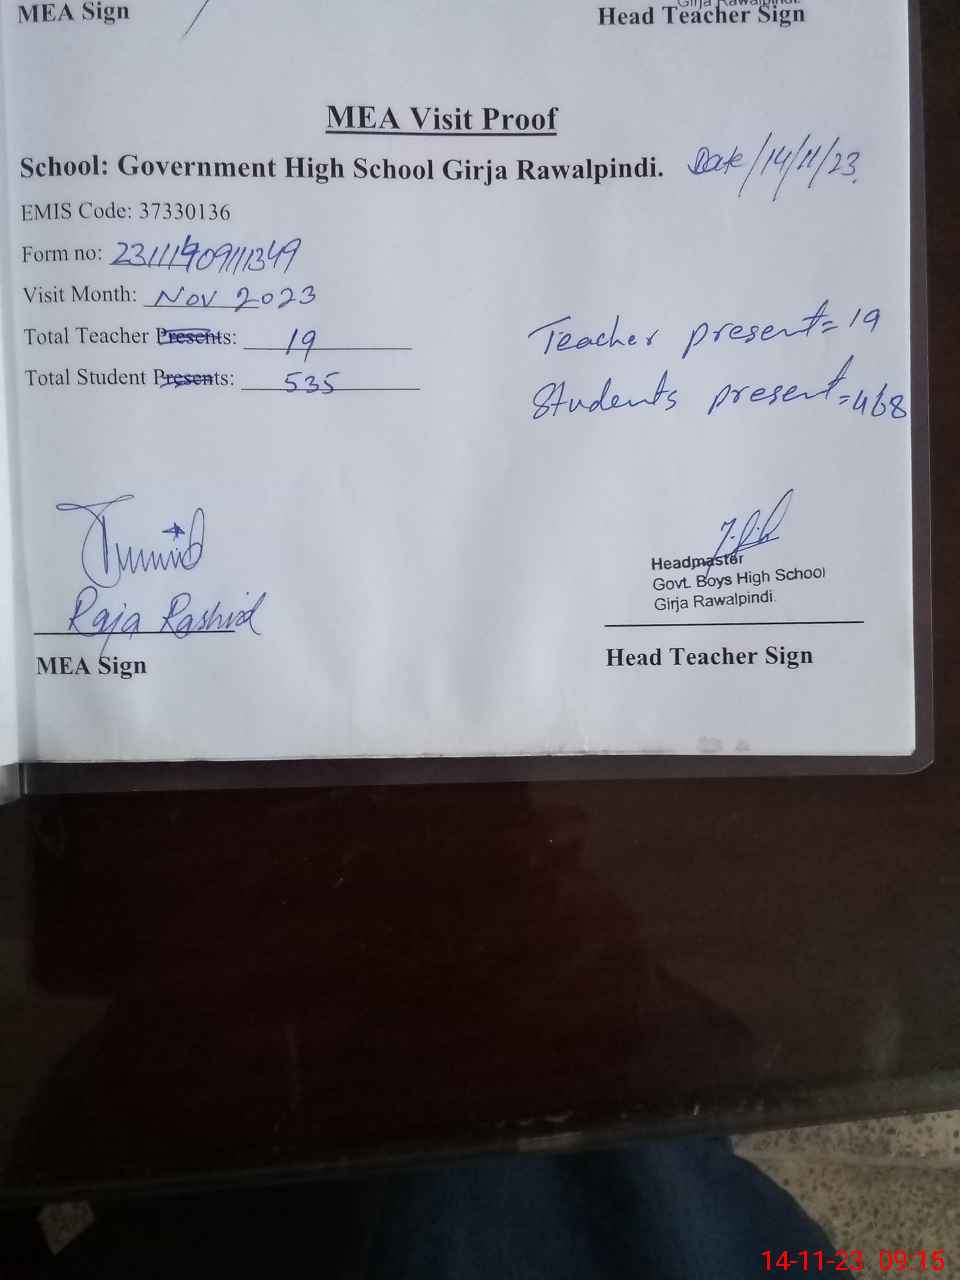 MEA Sign
Girja Rawalpindi.
Head Teacher Sign
MEA Visit Proof
School: Government High School Girja Rawalpindi.
Date/14/11/23
EMIS Code: 37330136
Form no:
Visit Month: Nov 2023
Total Teacher Presents: 19
Total Student Presents: 535
Teacher present = 19
Students present = 468
Raja Rashid
MEA Sign
Headmaster
Govt. Boys High School
Girja Rawalpindi.
Head Teacher Sign
14-11-23 09:15